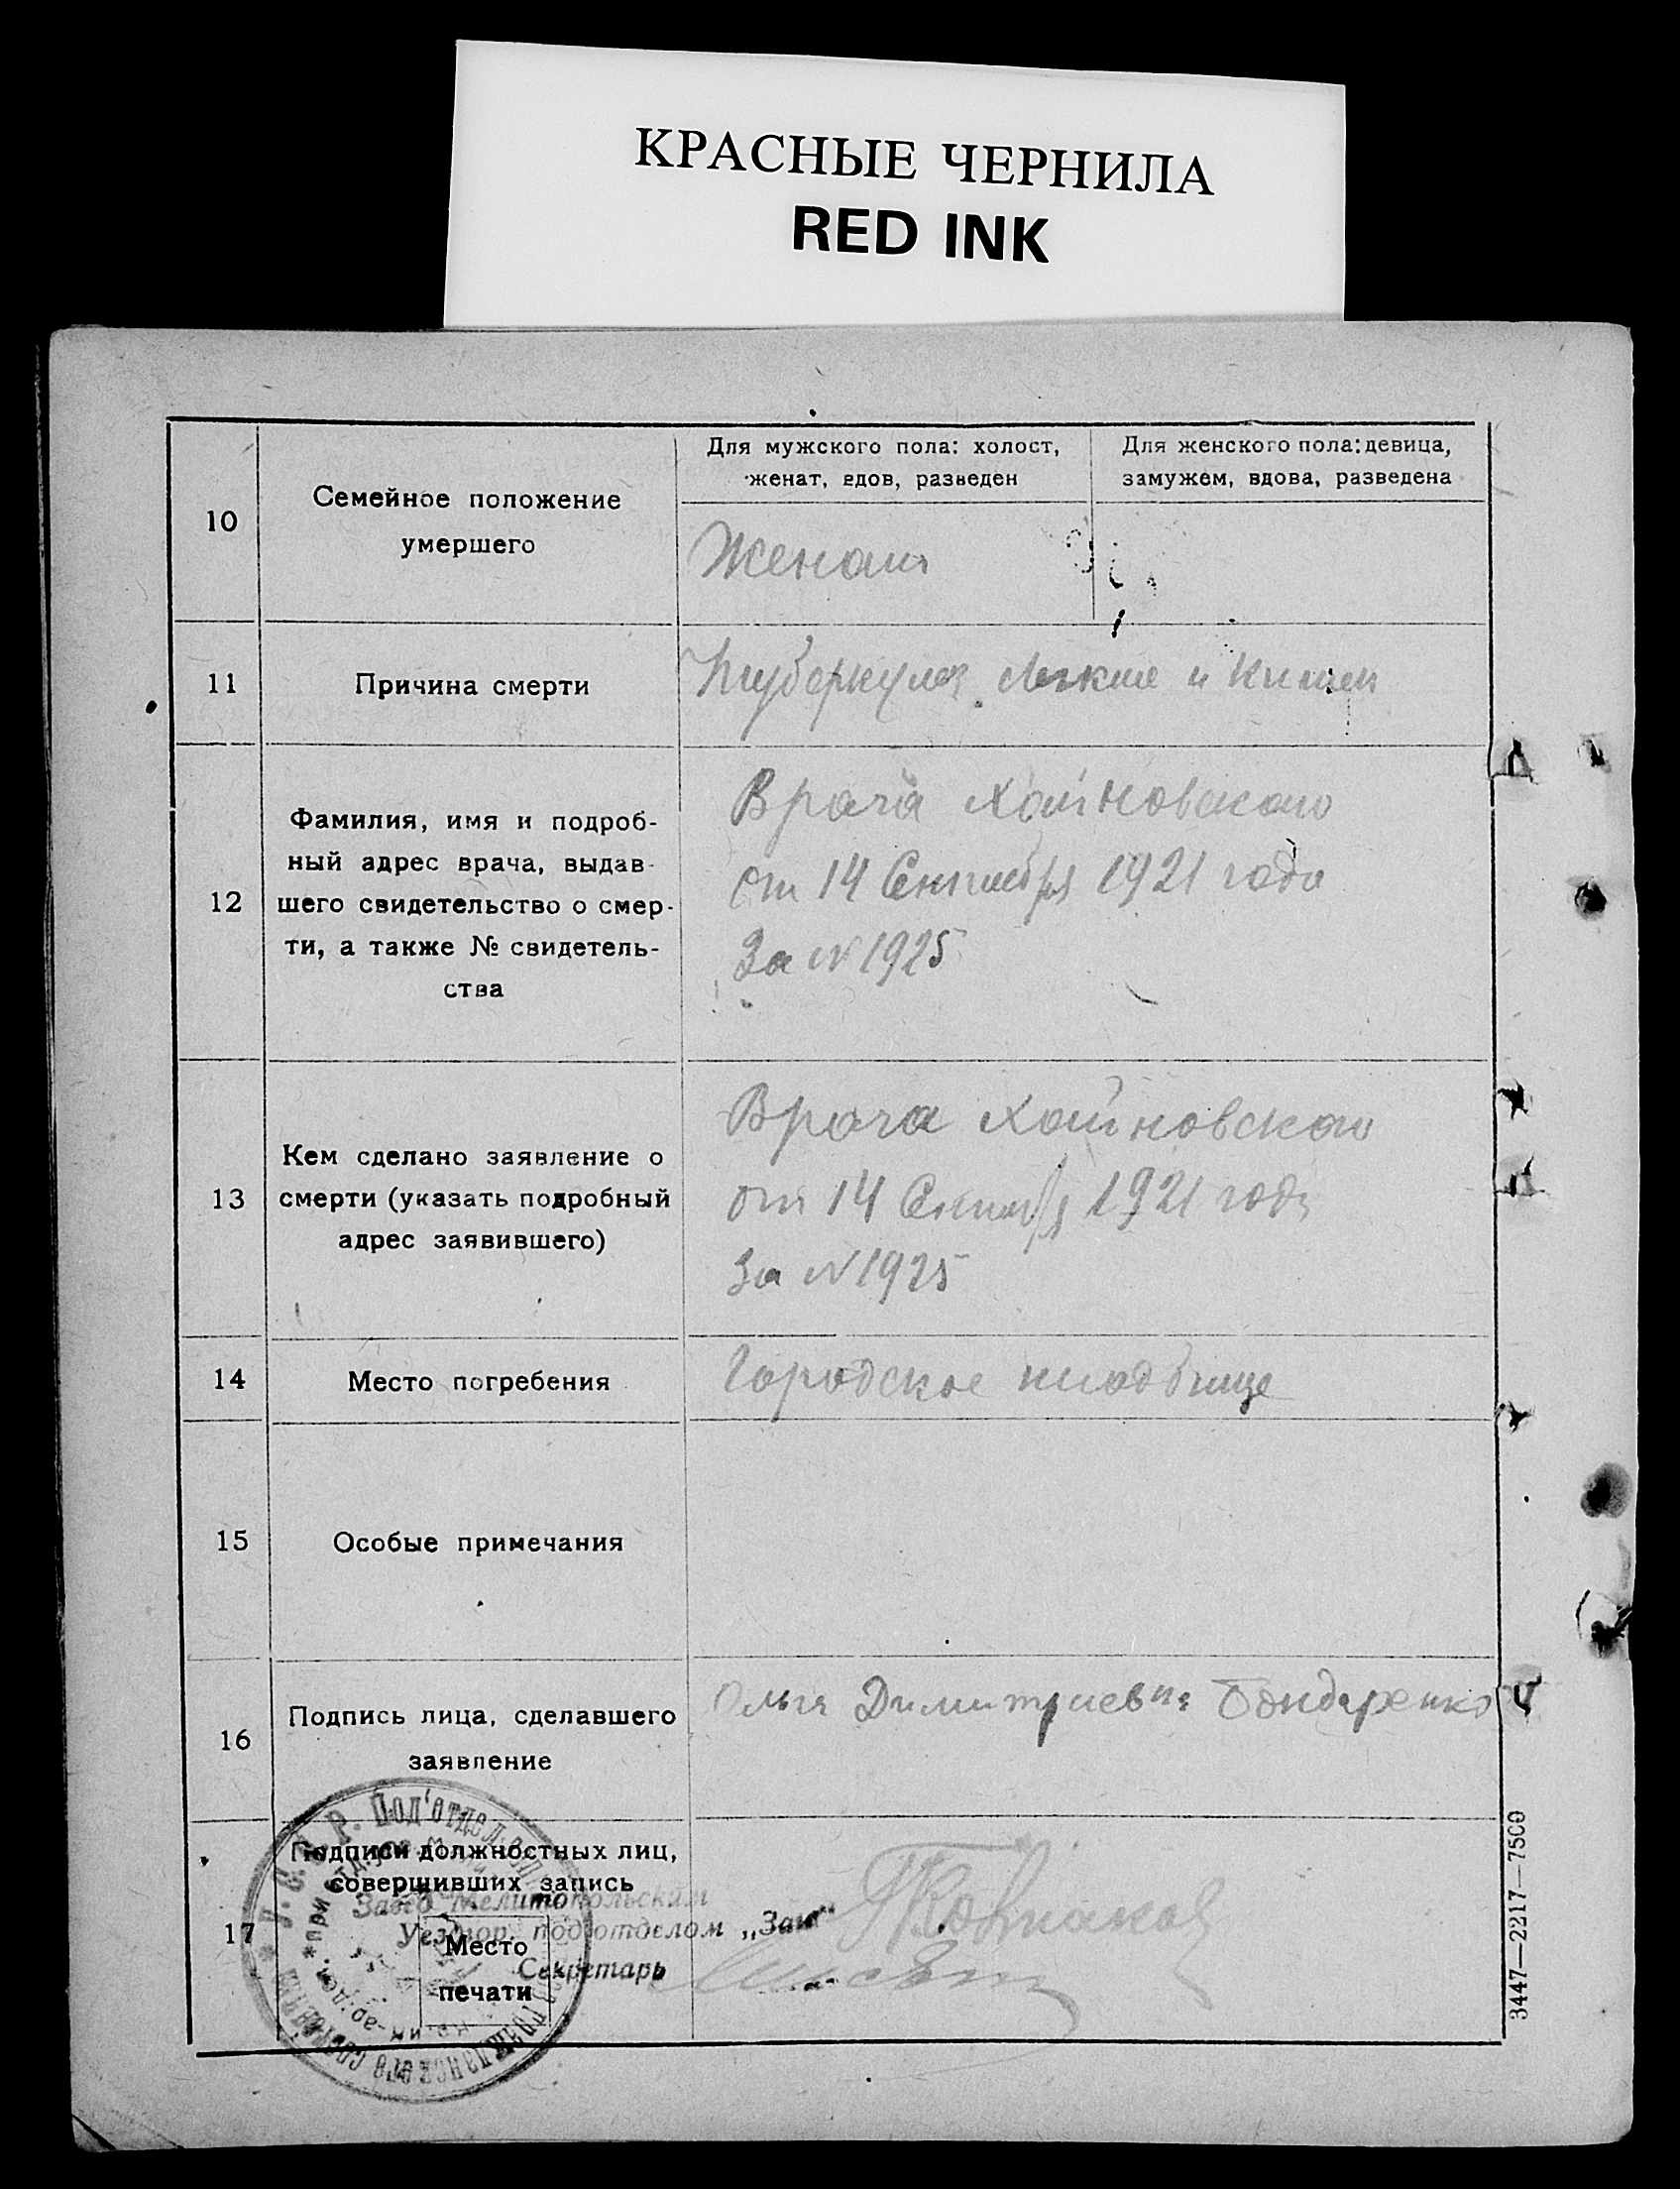 КРАСНЫЕ ЧЕРНИЛА
RED INK
10
Семейное положение
умершего
Для мужского пола: холост,
женат, вдов, разведен
Для женского пола: девица,
замужем, вдова, разведена
Женат
11
Причина смерти
Туберкулез Легких и Кишек
12
Фамилия, имя и подроб-
ный адрес врача, выдав-
шего свидетельство о смер-
ти, а также № свидетель-
ства
Врача Хойновского
от 14 Сентября 1921 года
За № 1925
13
Кем сделано заявление о
смерти (указать подробный
адрес заявившего)
Врача Хойновского
от 14 Сентября 1921 года
За № 1925
14
Место погребения
Городское кладбище
15
Особые примечания
16
Подпись лица, сделавшего
заявление
Ольга Димитриевна Бондаренко
17
Подписи должностных лиц,
совершивших запись
Завед. Мелитопольским
Уездгор. под'отделом „Заг“
Секретарь
Место
печати
У.С.С.Р. Под'отдел
гражданского состояния
3447—2217—7500